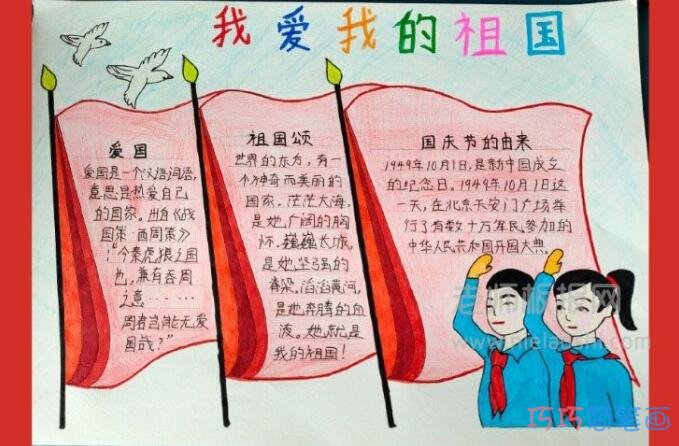 我爱我的祖国
爱国
爱国是一个汉语词语,
意思是热爱自己
的国家。出自《战
国策·西周策》
:"今秦虎狼之国
也,兼有吞周
之意······
周君岂能无爱
国哉?"
祖国颂
世界的东方,有一
个神奇而美丽的
国家。茫茫大海,
是她广阔的胸
怀。巍巍长城,
是她坚强的
脊梁。滔滔黄河,
是她奔腾的血
液。她就是
我的祖国!
国庆节的由来
1949年10月1日,是新中国成立
的纪念日。1949年10月1日这
一天,在北京天安门广场举
行了有数十万军民参加的
中华人民共和国开国大典。
老师板报网
巧巧简笔画